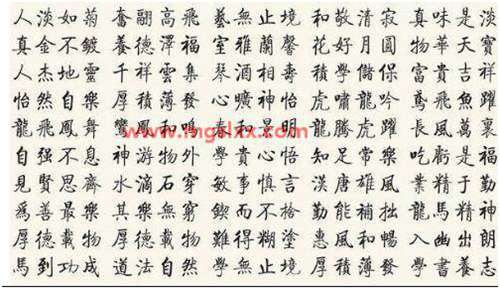 人淡如菊 奮翮高飛 藝無止境 和敬清寂 真味是淡
真金不鍍 養德澤福 室雅蘭馨 花好月圓 物華天寶
人杰地靈 千祥雲集 琴酒相壽 學儲保 富貴吉祥
怡然自樂 厚積薄發 心曠神怡 虎嘯龍吟 鳶飛魚躍
龍飛鳳舞 鸞鳳和鳴 春和景明 龍騰虎躍 長風萬裏
www.mgslxx.com
自强不息 神游物外 貴心悟 知足常樂 吃虧是福
見賢思齊 水滴石穿 敏事慎言 漢唐雄風 業精于勤
為善最樂 其樂無窮 鍥而不捨 勤能補拙 龍馬精神
厚德載物 難得糊塗 惠風和暢 入幽出朗
馬到功成 道法自然 學無止境 厚積薄發 學書養志